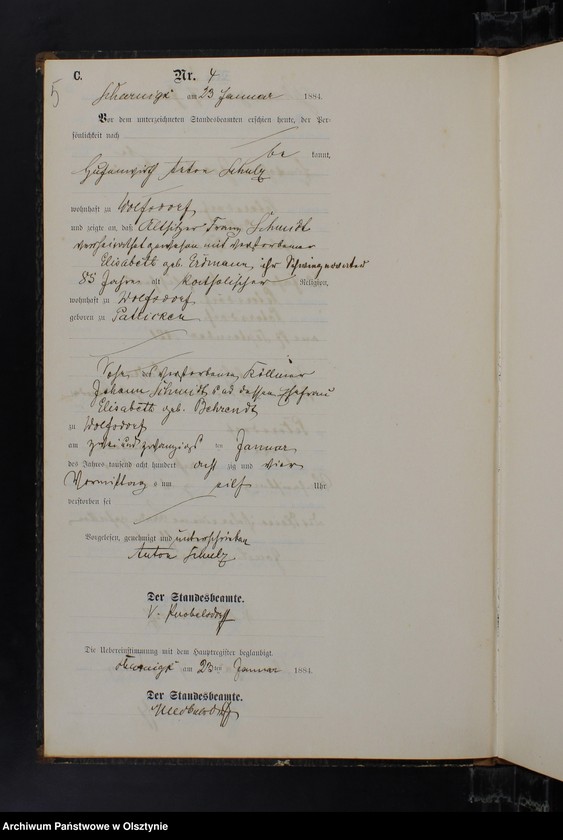 5
C. Nr. 4
Scharnigk am 23 Januar 1884.
Vor dem unterzeichneten Standesbeamten erschien heute, der Per-
sönlichkeit nach
be kannt,
Anton Schulz
wohnhaft zu Wolfsdorf
und zeigte an, daß Altsitzer Franz Schmidt
verheirathet gewesen mit verstorbener
Elisabeth geb. Erdmann, ihr Schwiegervater
85 Jahre alt katholischer Religion,
wohnhaft zu Wolfsdorf
geboren zu
Sohn des verstorbenen Köllmer
Johann Schmidt und dessen Ehefrau
Elisabeth geb. Behrendt
zu Wolfsdorf
am zwei und zwanzigst ten Januar
des Jahres tausend acht hundert acht zig und vier
Vormittags um eilf Uhr
verstorben sei
Vorgelesen, genehmigt und unterschrieben
Anton Schulz
Der Standesbeamte.
Die Uebereinstimmung mit dem Hauptregister beglaubigt.
Scharnigk am 23 ten Januar 1884.
Der Standesbeamte.
Archiwum Państwowe w Olsztynie